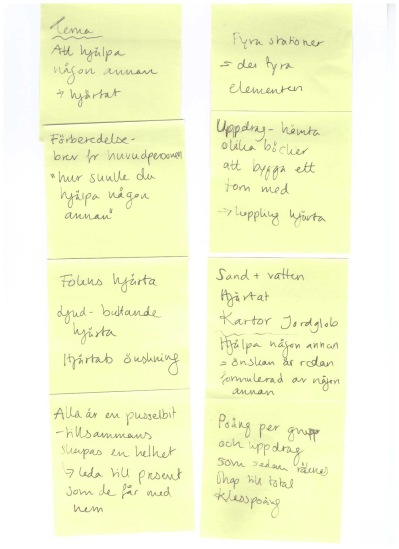 Tema
Att hjälpa
någon annan
→ hjärtat
Förberedelse-
brev fr huvudpersonen
"hur skulle du
hjälpa någon
annan"
Folens hjärta
Ljud - bultande
hjärta
Hjärtats önskning
Alla är en pusselbit
- tillsammans
skapas en helhet
→ leda till present
som de får med
hem
Fyra stationer
= de fyra
elementen
Uppdrag - hämta
olika böcker
att bygga ett
torn med
→ koppling hjärta
Sand + vatten
Hjärtat
Kartor Jordglob
Hjälpa någon annan
= önskan är redan
formulerad av någon
annan
Poäng per grupp
och uppdrag
som sedan räknas
ihop till total
klasspoäng